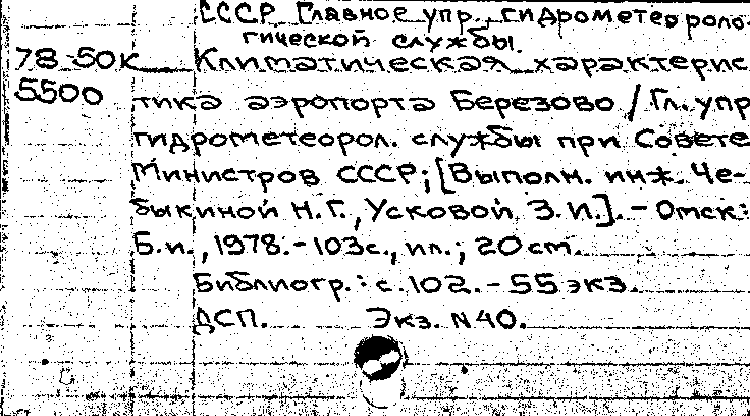 СССР. Главное упр. гидрометеороло-
гической службы.
78-50к Климатическая характерис
5500 тика аэропорта Березово / Гл. упр
гидрометеорол. службы при Совете
Министров СССР; [Выполн. инж. Че-
быкиной Н.Г., Усковой З.И.]. – Омск:
Б.и., 1978. – 103с., ил.; 20см.
Библиогр.: с. 102. – 55 экз.
ДСП. Экз. N 40.